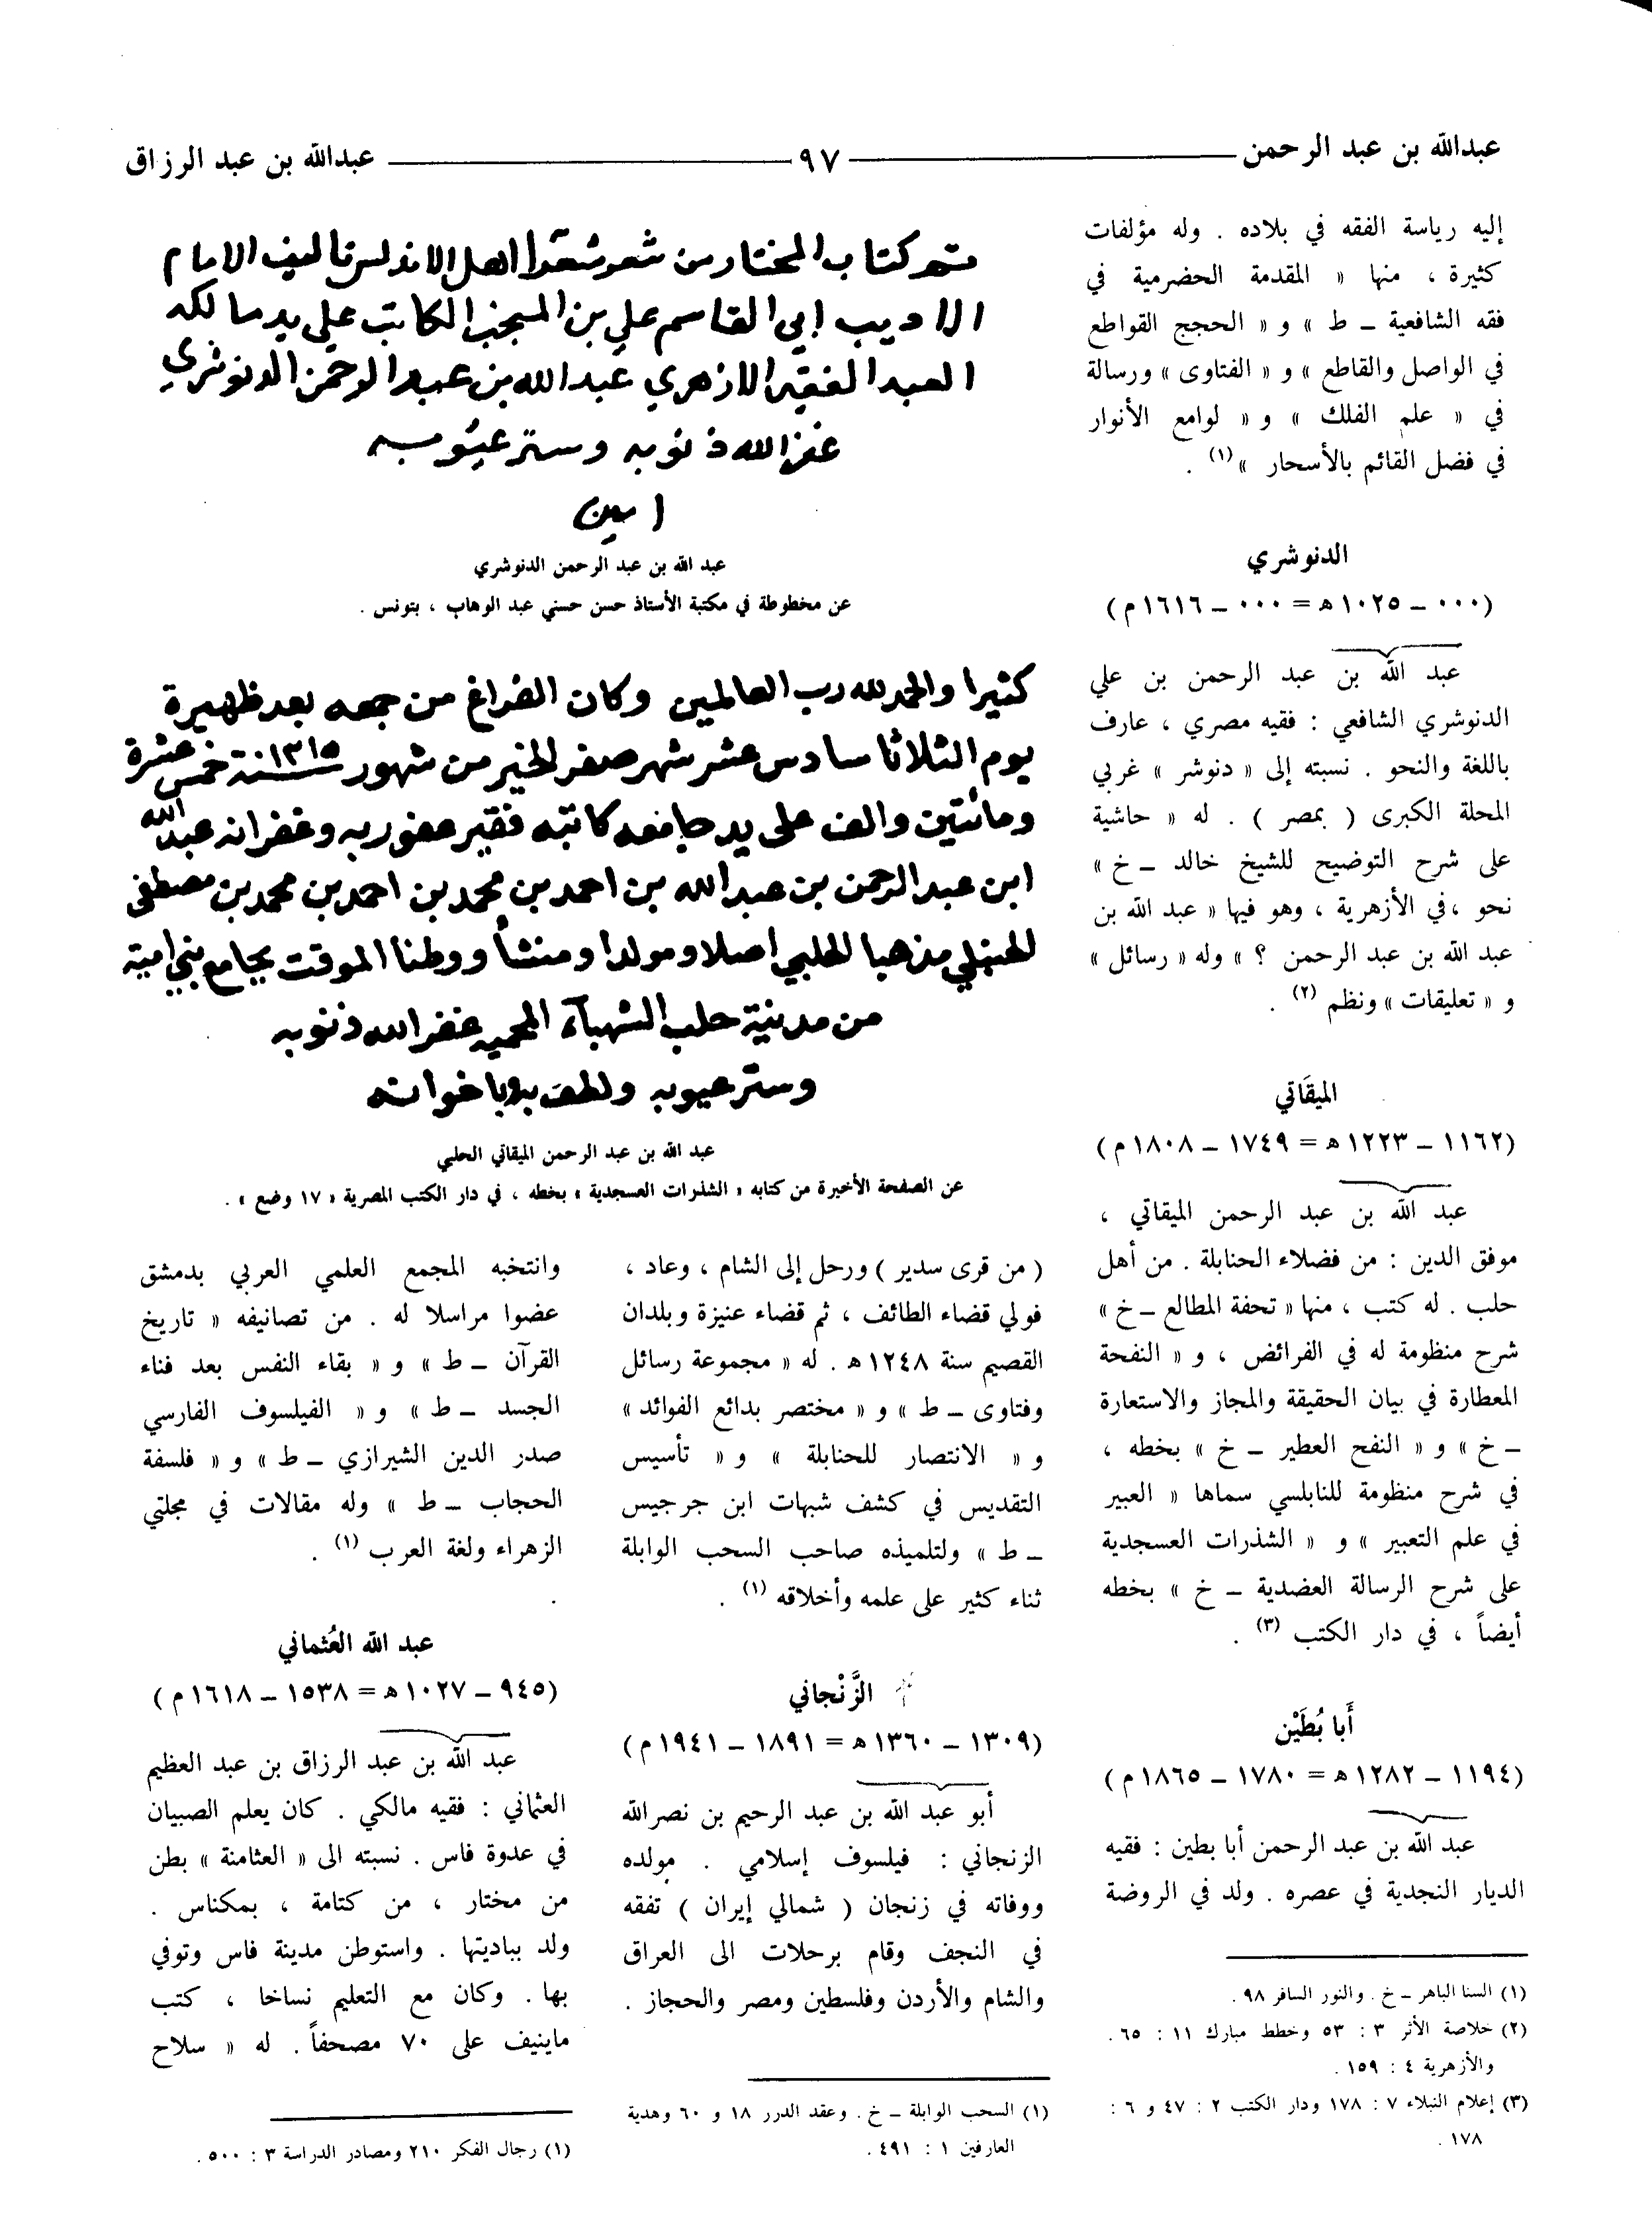 عبدالله بن عبد الرحمن ٩٧ عبدالله بن عبد الرزاق
إليه رياسة الفقه في بلاده . وله مؤلفات
كثيرة ، منها « المقدمة الحضرمية في
فقه الشافعية ــ ط » و « الحجج القواطع
في الواصل والقاطع » و « الفتاوى » ورسالة
في « علم الفلك » و « لوامع الأنوار
في فضل القائم بالأسحار » (١) .
الدنوشري
(٠٠٠ ــ ١٠٢٥ ه = ٠٠٠ ــ ١٦١٦ م)
عبد الله بن عبد الرحمن بن علي
الدنوشري الشافعي : فقيه مصري ، عارف
باللغة والنحو . نسبته إلى « دنوشر » غربي
المحلة الكبرى ( بمصر ) . له « حاشية
على شرح التوضيح للشيخ خالد ــ خ »
نحو ، في الأزهرية ، وهو فيها « عبد الله بن
عبد الله بن عبد الرحمن ؟ » وله « رسائل »
و « تعليقات » ونظم (٢) .
الميقَاتي
(١١٦٢ ــ ١٢٢٣ ه = ١٧٤٩ ــ ١٨٠٨ م)
عبد الله بن عبد الرحمن الميقاتي ،
موفق الدين : من فضلاء الحنابلة . من أهل
حلب . له كتب ، منها « تحفة المطالع ــ خ »
شرح منظومة له في الفرائض ، و « النفحة
المعطارة في بيان الحقيقة والمجاز والاستعارة
ــ خ » و « النفح العطير ــ خ » بخطه ،
في شرح منظومة للنابلسي سماها « العبير
في علم التعبير » و « الشذرات العسجدية
على شرح الرسالة العضدية ــ خ » بخطه
أيضاً ، في دار الكتب (٣) .
أَبا بُطَيْن
(١١٩٤ ــ ١٢٨٢ ه = ١٧٨٠ ــ ١٨٦٥ م)
عبد الله بن عبد الرحمن أبا بطين : فقيه
الديار النجدية في عصره . ولد في الروضة
(١) السنا الباهر ــ خ . والنور السافر ٩٨ .
(٢) خلاصة الأثر ٣ : ٥٣ وخطط مبارك ١١ : ٦٥ .
والأزهرية ٤ : ١٥٩ .
(٣) إعلام النبلاء ٧ : ١٧٨ ودار الكتب ٢ : ٤٧ و ٦ :
١٧٨ .
تم كتاب المختار من شعر شعراء اهل الاندلس تاليف الامام
الاديب ابي القاسم علي بن المنجب الكاتب علي يد مالكه
العبد الفقير الازهري عبد الله بن عبد الرحمن الدنوشري
غفر الله ذنوبه وستر عيوبه
امين
عبد الله بن عبد الرحمن الدنوشري
عن مخطوطة في مكتبة الأستاذ حسن حسني عبد الوهاب ، بتونس .
كثيرا والحمد لله رب العالمين وكان الفراغ من جمعه بعد ظهيرة
يوم الثلاثا سادس عشر شهر صفر الخير من شهور سنة ١٢١٥ خمس عشرة
ومائتين والف على يد جامعه كاتبه فقير عفو ربه وغفرانه عبد الله
ابن عبد الرحمن بن عبد الله بن احمد بن محمد بن احمد بن محمد بن مصطفى
الحنبلي مذهبا الحلبي اصلا ومولدا ومنشأ ووطنا الموقت بجامع بني امية
من مدينة حلب الشهباء المحميه غفر الله ذنوبه
وستر عيوبه ولطف به وباخوانه
عبد الله بن عبد الرحمن الميقاتي الحلبي
عن الصفحة الأخيرة من كتابه « الشذرات العسجدية » بخطه ، في دار الكتب المصرية « ١٧ وضع » .
( من قرى سدير ) ورحل إلى الشام ، وعاد ،
فولي قضاء الطائف ، ثم قضاء عنيزة وبلدان
القصيم سنة ١٢٤٨ ه . له « مجموعة رسائل
وفتاوى ــ ط » و « مختصر بدائع الفوائد »
و « الانتصار للحنابلة » و « تأسيس
التقديس في كشف شبهات ابن جرجيس
ــ ط » ولتلميذه صاحب السحب الوابلة
ثناء كثير على علمه وأخلاقه (١) .
الزَّنْجاني
(١٣٠٩ ــ ١٣٦٠ ه = ١٨٩١ ــ ١٩٤١ م)
أبو عبد الله بن عبد الرحيم بن نصرالله
الزنجاني : فيلسوف إسلامي . مولده
ووفاته في زنجان ( شمالي إيران ) تفقه
في النجف وقام برحلات الى العراق
والشام والأردن وفلسطين ومصر والحجاز .
(١) السحب الوابلة ــ خ . وعقد الدرر ١٨ و ٦٠ وهدية
العارفين ١ : ٤٩١ .
وانتخبه المجمع العلمي العربي بدمشق
عضوا مراسلا له . من تصانيفه « تاريخ
القرآن ــ ط » و « بقاء النفس بعد فناء
الجسد ــ ط » و « الفيلسوف الفارسي
صدر الدين الشيرازي ــ ط » و « فلسفة
الحجاب ــ ط » وله مقالات في مجلتي
الزهراء ولغة العرب (١) .
عبد الله العُثماني
(٩٤٥ ــ ١٠٢٧ ه = ١٥٣٨ ــ ١٦١٨ م)
عبد الله بن عبد الرزاق بن عبد العظيم
العثماني : فقيه مالكي . كان يعلم الصبيان
في عدوة فاس . نسبته الى « العثامنة » بطن
من مختار ، من كتامة ، بمكناس .
ولد بباديتها . واستوطن مدينة فاس وتوفي
بها . وكان مع التعليم نساخا ، كتب
ماينيف على ٧٠ مصحفاً . له « سلاح
(١) رجال الفكر ٢١٠ ومصادر الدراسة ٣ : ٥٠٠ .